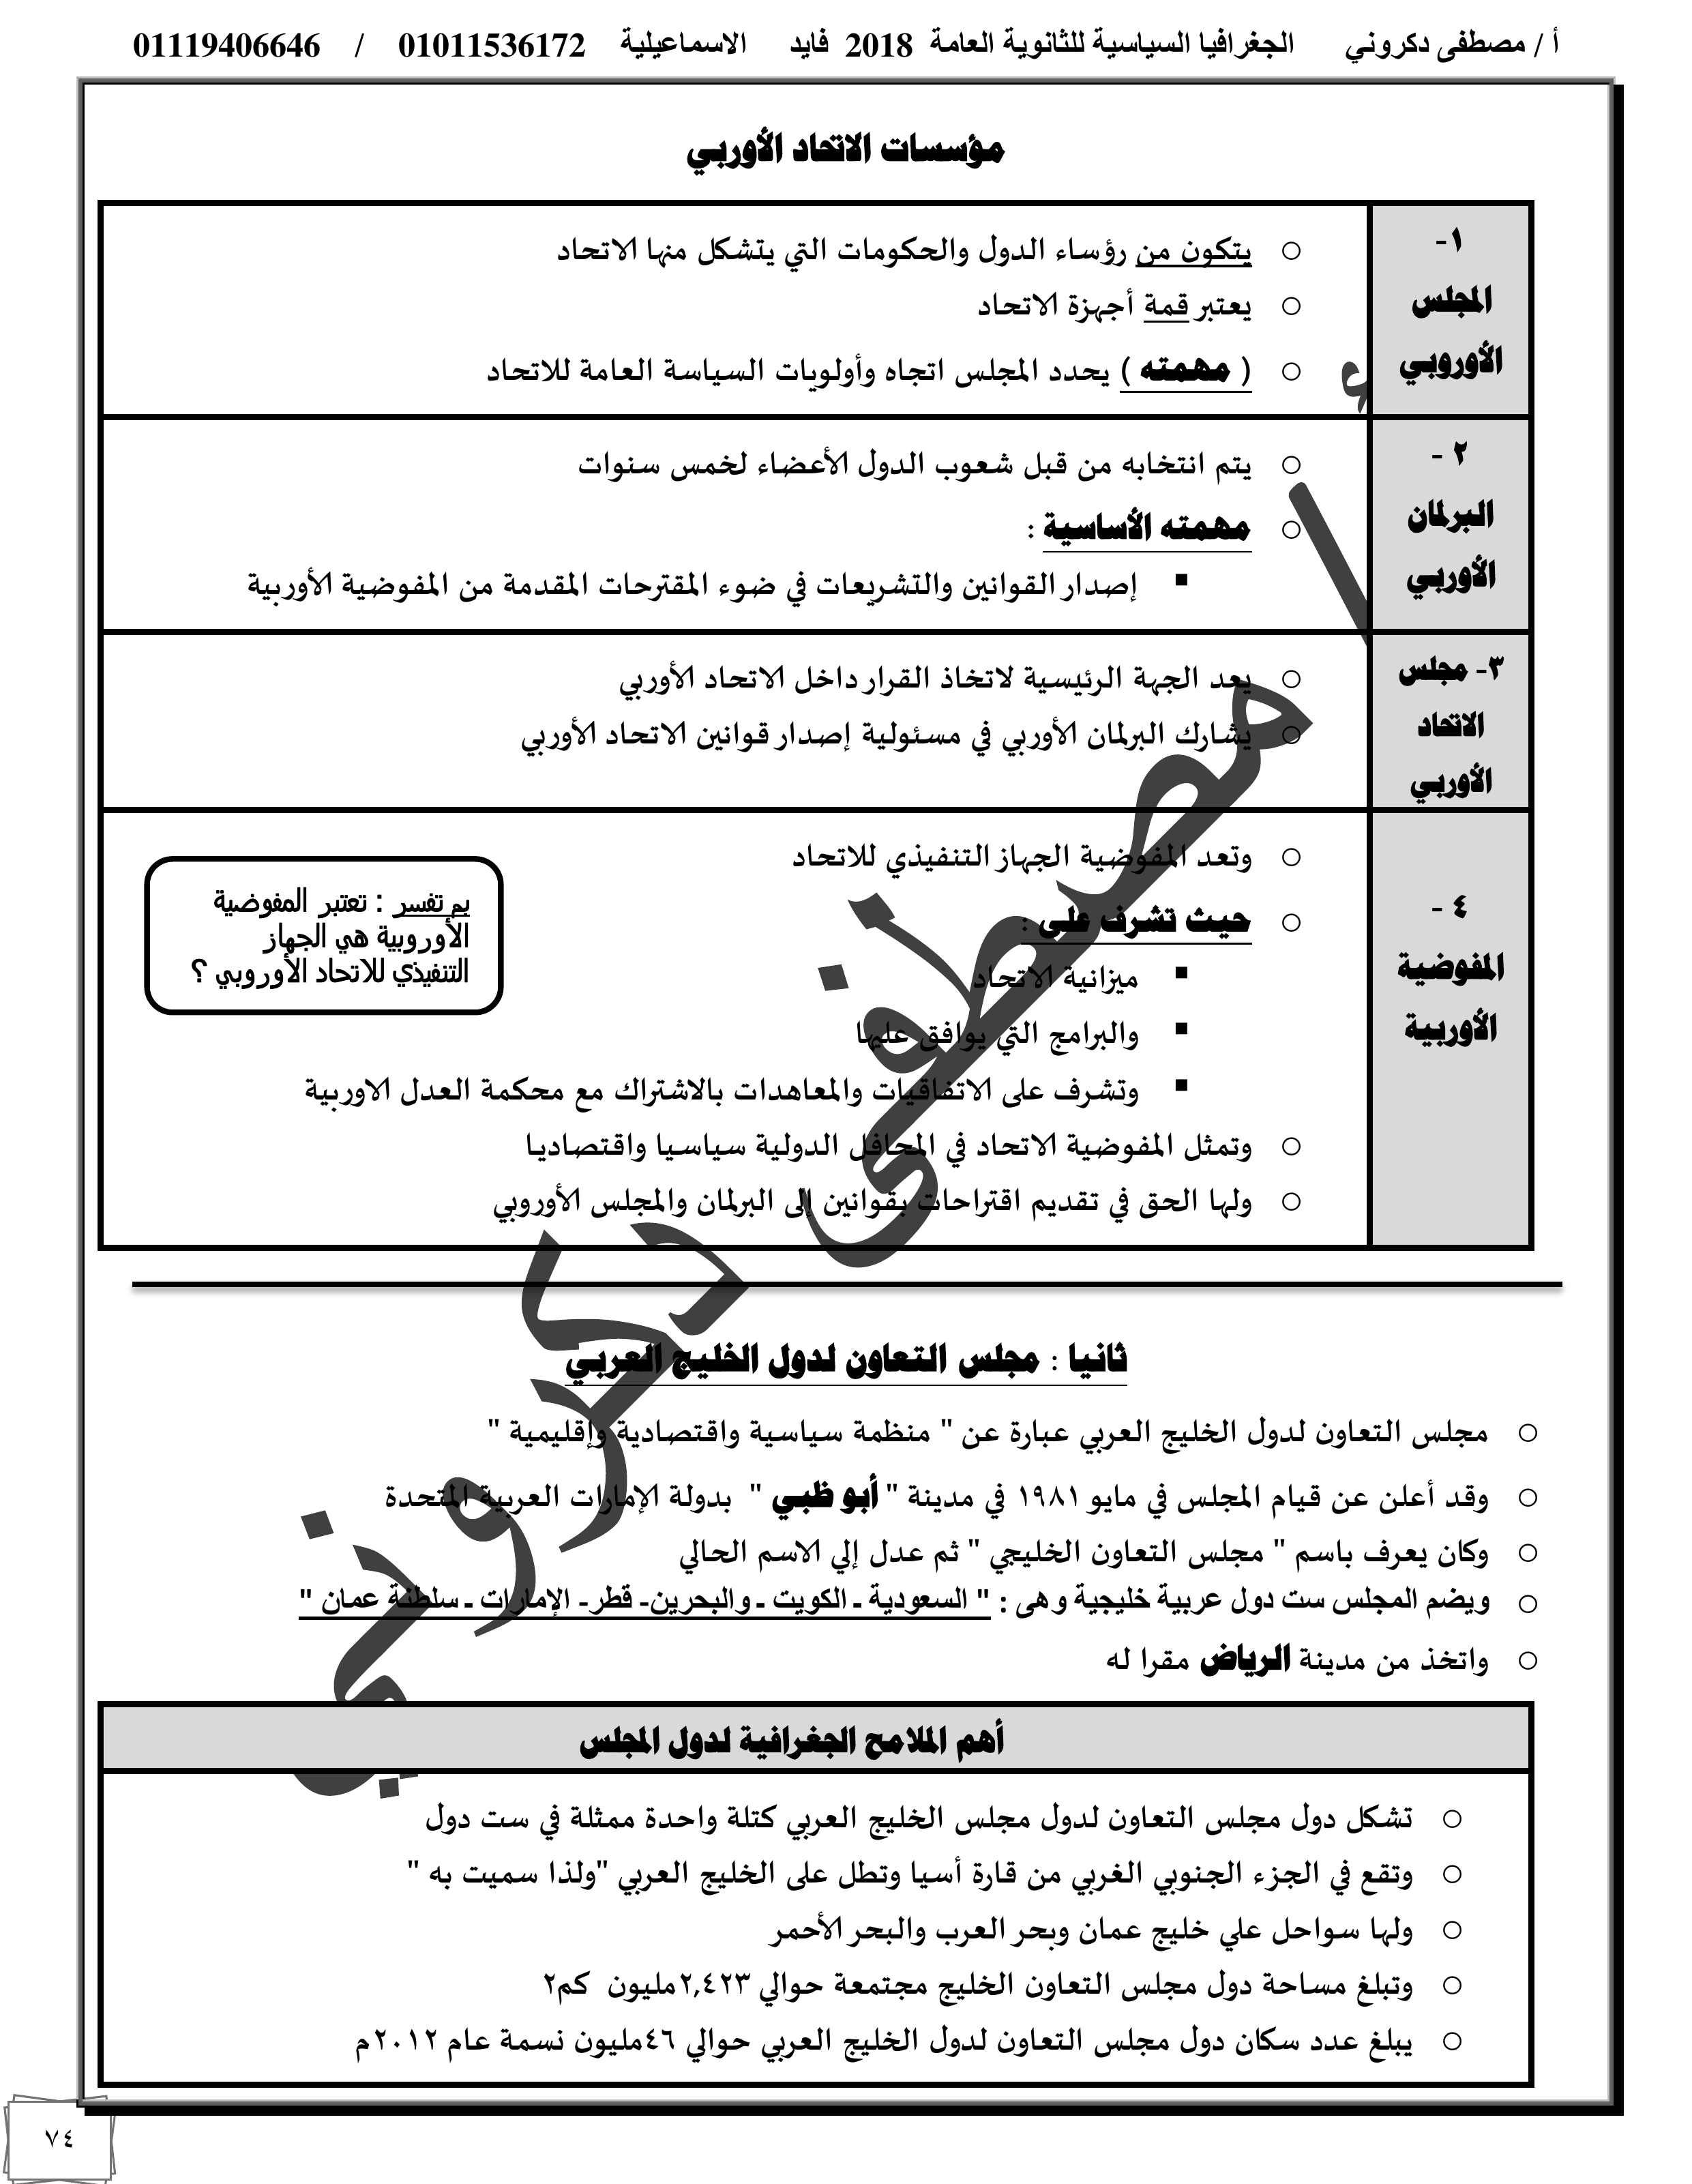 أ / مصطفى دكروني الجغرافيا السياسية للثانوية العامة 2018 فايد الاسماعيلية 01011536172 / 01119406646
مؤسسات الاتحاد الأوربي
١-
المجلس
الأوروبي
○ يتكون من رؤساء الدول والحكومات التي يتشكل منها الاتحاد
○ يعتبر قمة أجهزة الاتحاد
○ ( مهمته ) يحدد المجلس اتجاه وأولويات السياسة العامة للاتحاد
٢ -
البرلمان
الأوربي
○ يتم انتخابه من قبل شعوب الدول الأعضاء لخمس سنوات
○ مهمته الأساسية :
▪ إصدار القوانين والتشريعات في ضوء المقترحات المقدمة من المفوضية الأوربية
٣- مجلس
الاتحاد
الأوربي
○ يعد الجهة الرئيسية لاتخاذ القرار داخل الاتحاد الأوربي
○ يشارك البرلمان الأوربي في مسئولية إصدار قوانين الاتحاد الأوربي
٤ -
المفوضية
الأوربية
○ وتعد المفوضية الجهاز التنفيذي للاتحاد
○ حيث تشرف على :
▪ ميزانية الاتحاد
▪ والبرامج التي يوافق عليها
▪ وتشرف على الاتفاقيات والمعاهدات بالاشتراك مع محكمة العدل الاوربية
○ وتمثل المفوضية الاتحاد في المحافل الدولية سياسيا واقتصاديا
○ ولها الحق في تقديم اقتراحات بقوانين إلى البرلمان والمجلس الأوروبي
بم تفسر : تعتبر المفوضية
الأوروبية هي الجهاز
التنفيذي للاتحاد الأوروبي ؟
ثانيا : مجلس التعاون لدول الخليج العربي
○ مجلس التعاون لدول الخليج العربي عبارة عن " منظمة سياسية واقتصادية وإقليمية "
○ وقد أعلن عن قيام المجلس في مايو ١٩٨١ في مدينة " أبو ظبي " بدولة الإمارات العربية المتحدة
○ وكان يعرف باسم " مجلس التعاون الخليجي " ثم عدل إلي الاسم الحالي
○ ويضم المجلس ست دول عربية خليجية وهى : " السعودية ـ الكويت ـ والبحرين- قطر- الإمارات ـ سلطنة عمان "
○ واتخذ من مدينة الرياض مقرا له
أهم الملامح الجغرافية لدول المجلس
○ تشكل دول مجلس التعاون لدول مجلس الخليج العربي كتلة واحدة ممثلة في ست دول
○ وتقع في الجزء الجنوبي الغربي من قارة أسيا وتطل على الخليج العربي "ولذا سميت به "
○ ولها سواحل علي خليج عمان وبحر العرب والبحر الأحمر
○ وتبلغ مساحة دول مجلس التعاون الخليج مجتمعة حوالي ٢,٤٢٣مليون كم٢
○ يبلغ عدد سكان دول مجلس التعاون لدول الخليج العربي حوالي ٤٦مليون نسمة عام ٢٠١٢م
أ / مصطفى دكروني
٧٤